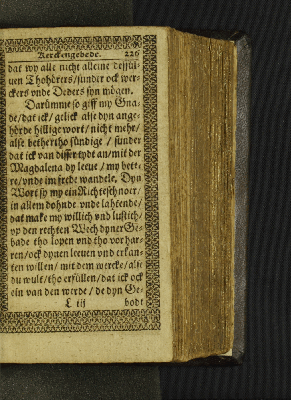 Kerckengebede. 226
dat wy alle nicht alleine dessül-
uen Thohörers/sunder ock wer-
ckers vnde Deders syn mögen.
Darümme so giff my Gna-
de/dat ick/gelick alse dyn ange-
hörde hillige wort/nicht mehr/
alse bethertho sündige/sünder
dat ick van disser tydt an/mit der
Magdalena dy leeue/my bete-
re/vnde im frede wandele. Dyn
Wort sy my ein Richteschnoer/
in allem dohnde vnde lahtende/
dat make my willich vnd lustich/
vp den rechten Wech dyner Ge-
bade tho lopen vnd tho vorhar-
ren/ock dynen leeuen vnd erkan-
ten willen/mit dem wercke/alse
du wult/tho erfüllen/dat ick ock
ein van den werde/de dyn Ge-
L iij bodt